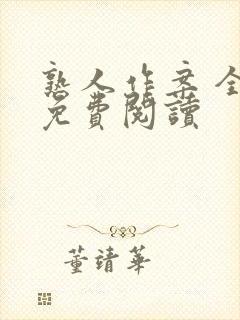 熟人作案全
免費閱讀
董靖華